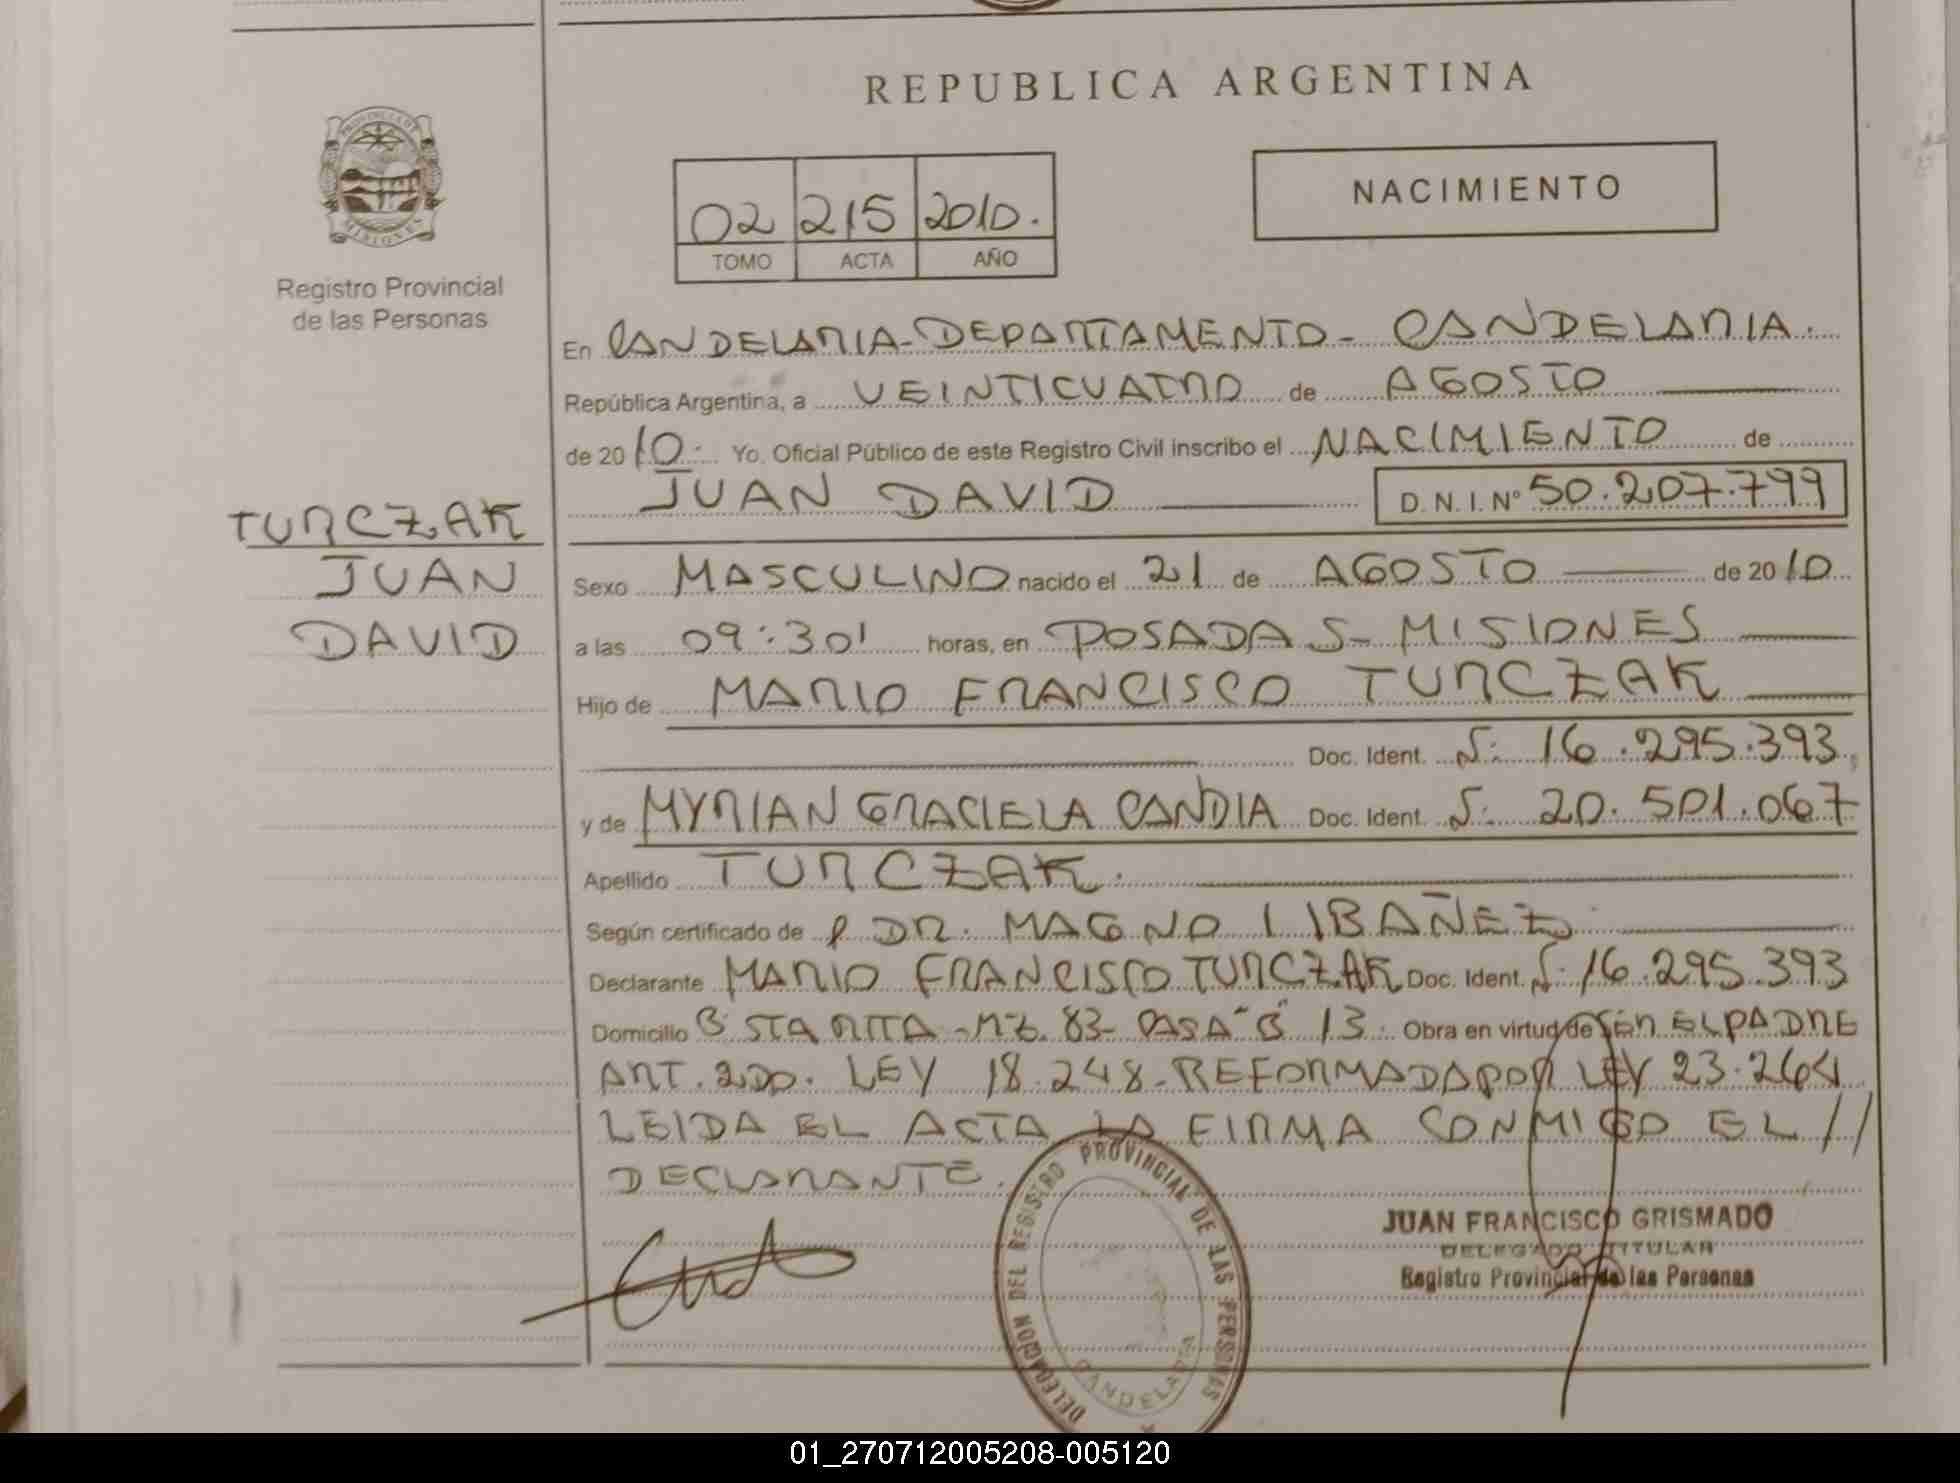 REPUBLICA ARGENTINA
PROVINCIA DE
MISIONES
Registro Provincial
de las Personas
NACIMIENTO
02 215 2010.
TOMO ACTA AÑO
En CANDELARIA-DEPARTAMENTO- CANDELARIA.
República Argentina, a VEINTICUATRO de AGOSTO
de 2010. Yo, Oficial Público de este Registro Civil inscribo el NACIMIENTO de
JUAN DAVID D.N.I.Nº 50.207.799
TURCZAK
JUAN
DAVID
Sexo MASCULINO nacido el 21 de AGOSTO de 2010
a las 09:30' horas, en POSADAS- MISIONES
Hijo de MARIO FRANCISCO TURCZAK
Doc. Ident. N: 16.295.393
y de MYRIAN GRACIELA CANDIA Doc. Ident. N: 20.501.067
Apellido TURCZAK.
Según certificado de DR. MAGNO I IBAÑEZ
Declarante MARIO FRANCISCO TURCZAK Doc. Ident. N: 16.295.393
Domicilio Bº STA RITA -MZ. 83- CASA "B" 13. Obra en virtud de SER EL PADRE
ART. 2DO. LEY 18.248-REFORMADA POR LEY 23.264
LEIDA EL ACTA LA FIRMA CONMIGO EL //
DECLARANTE.
DELEGACION DEL REGISTRO PROVINCIAL DE LAS PERSONAS
CANDELARIA
JUAN FRANCISCO GRISMADO
DELEGADO TITULAR
Registro Provincial de las Personas
01_270712005208-005120